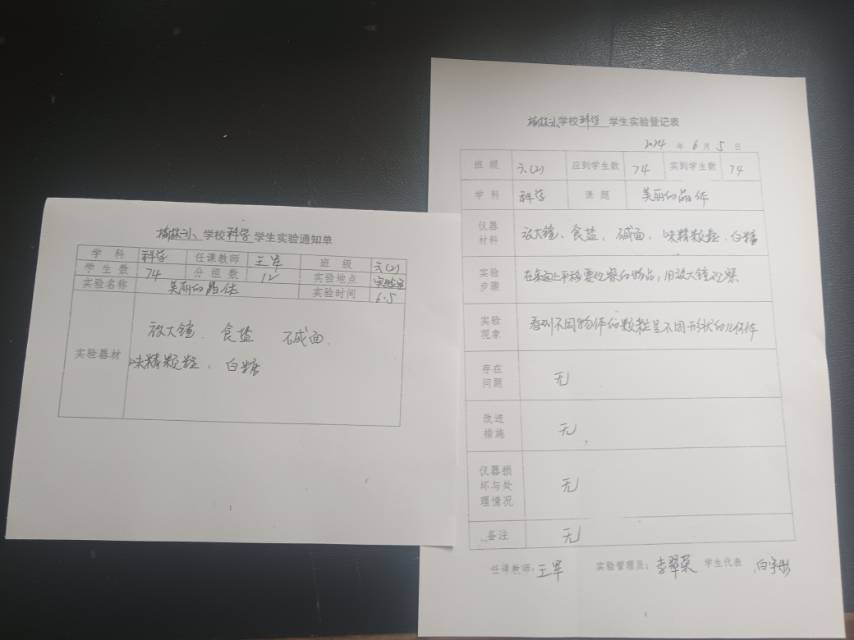 学校科学学生实验通知单
学科 科学 任课教师 王军 班级 六(2)
学生数 74 分组数 12 实验地点 实验室
实验名称 美丽的晶体 实验时间 6.5
实验器材 放大镜、食盐 碱面、
味精颗粒、白糖
学校科学 学生实验登记表
2024 年 6 月 5 日
班级 六(2) 应到学生数 74 实到学生数 74
学科 科学 课题 美丽的晶体
仪器材料 放大镜、食盐、碱面、味精颗粒、白糖
实验步骤 在桌面上平铺要观察的物品,用放大镜观察
实验现象 看到不同物体的颗粒呈不同形状的几何体
存在问题 无
改进措施 无
仪器损坏与处理情况 无
备注 无
任课教师:王军 实验管理员:李翠荣 学生代表 白宇彤